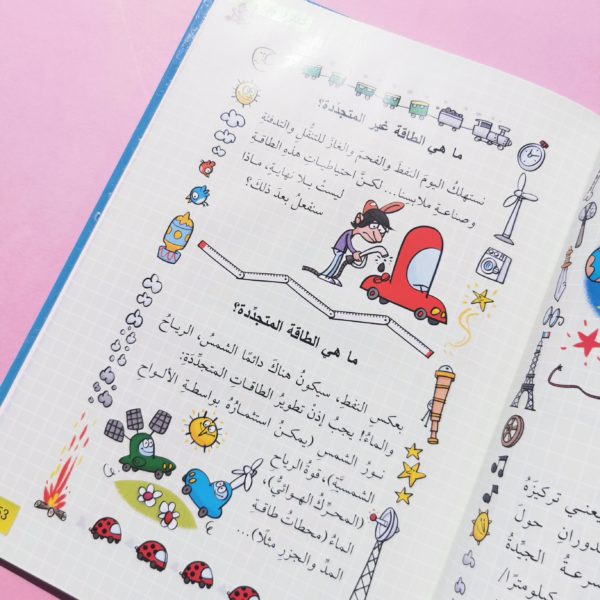 ما هي الطاقة غير المتجدّدة؟
نستهلكُ اليومَ النفطَ والفحمَ والغازَ للتنقُّلِ والتدفئة
وصناعةِ ملابسِنا... لكنَّ احتياطياتِ هذه الطاقة
ليستْ بلا نهايةٍ، ماذا
سنفعلُ بعدَ ذلكَ؟
ما هي الطاقة المتجدّدة؟
بعكسِ النفطِ، سيكونُ هناكَ دائمًا الشمسُ، الرياحُ
والماءُ! يجبُ إذنْ تطويرُ الطاقاتِ المتجدِّدةِ:
نورُ الشمسِ (يمكنُ استثمارُهُ بواسطةِ الألواحِ
الشمسيَّةِ)، قوَّةُ الرياحِ
(المحركُ الهوائيُّ)،
الماءُ (محطاتُ طاقة
المدِّ والجزرِ مثلًا)...
53
يعني تركيزَهُ
دورانِ حولَ
سرعةُ الجيِّدةُ
كيلومترًا/